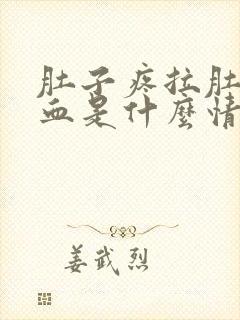 肚子疼拉肚
血是什麼情
姜武烈